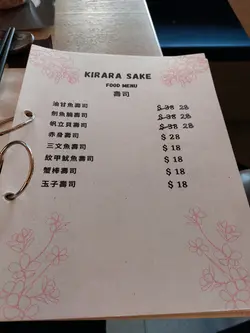 KIRARA SAKE
FOOD MENU
壽司
油甘魚壽司 $ 38 28
劍魚腩壽司 $ 38 28
帆立貝壽司 $ 38 28
赤身壽司 $ 28
三文魚壽司 $ 18
紋甲魷魚壽司 $ 18
蟹棒壽司 $ 18
玉子壽司 $ 18